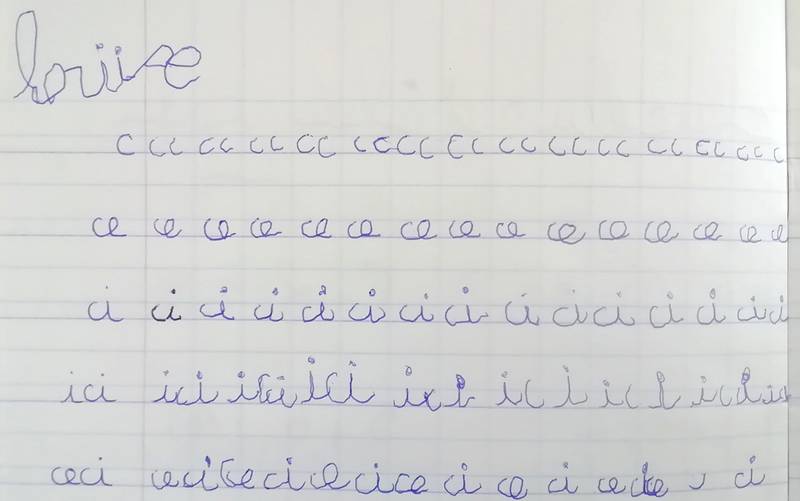 louise
c cc cc cc cc cc cc cc cc cc cc cc cc cc c
ce ce ce ce ce ce ce ce ce ce ce ce ce ce ce
ci ci ci ci ci ci ci ci ci ci ci ci ci ci ci
ici ici ici ici ici ici ici ici
ceci ceci ceci ceci ce ci ce ci